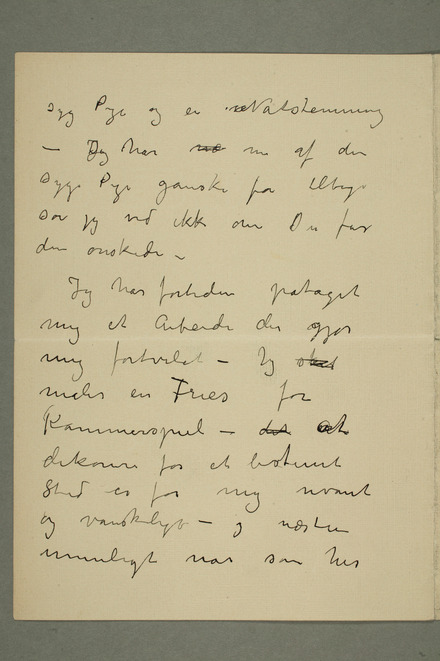 syg Pige og en Natstemning
– Jeg har nu af den
syge Pige ganske få tilbage
så jeg ved ikke om Du får
den ønskede –
Jeg har fortiden påtaget
mig et Arbeide der gjør
mig fortvilet – Jg skal
maler en Fries for
Kammerspiel – det At
dekorere for et bestemt
sted er for mig uvant
og vanskeligt – og næsten
umuligt når som her